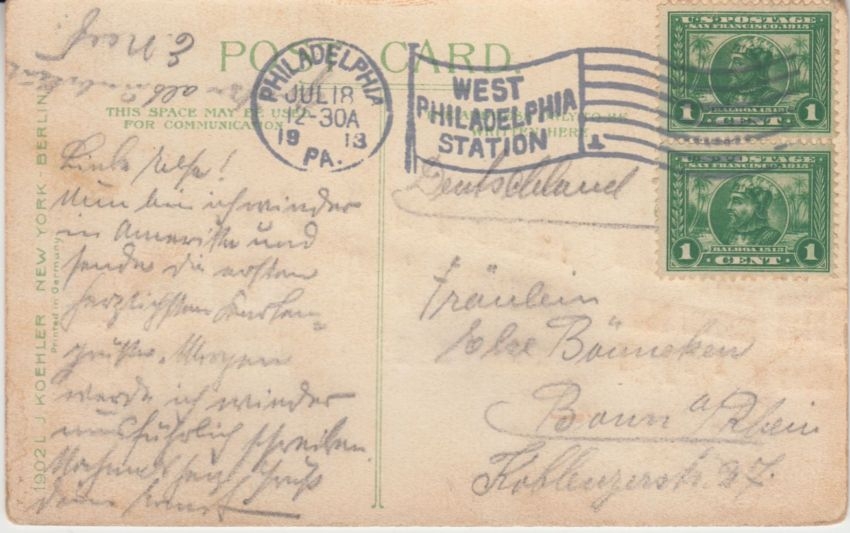 POST CARD
THIS SPACE MAY BE USED
FOR COMMUNICATION
WRITTEN HERE
PHILADELPHIA
JUL 18
12-30A
1913
PA.
WEST
PHILADELPHIA
STATION
1
U.S. POSTAGE
SAN FRANCISCO, 1915
BALBOA 1513
1 CENT 1
U.S. POSTAGE
SAN FRANCISCO, 1915
BALBOA 1513
1 CENT 1
1902 L J KOEHLER NEW YORK - BERLIN
Printed in Germany
Liebe Else!
Nun bin ich wieder
in Amerika und
sende die ersten
herzlichsten Karten-
grüße. Morgen
werde ich wieder
ausführlich schreiben.
Nochmals herzl. Gruß
Dein Ernst
Deutschland
Fräulein
Else Bönneken
Bonn a/Rhein
Koblenzerstr. 27.